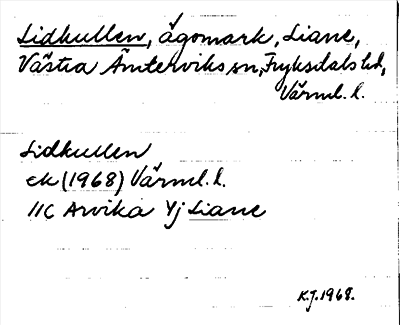 Lidkullen, ägomark, Liane,
Västra Ämterviks sn, Fryksdals hd,
Värml. l.
Lidkullen
ek (1968) Värml. l.
11C Arvika Yj Liane
K.J. 1968.